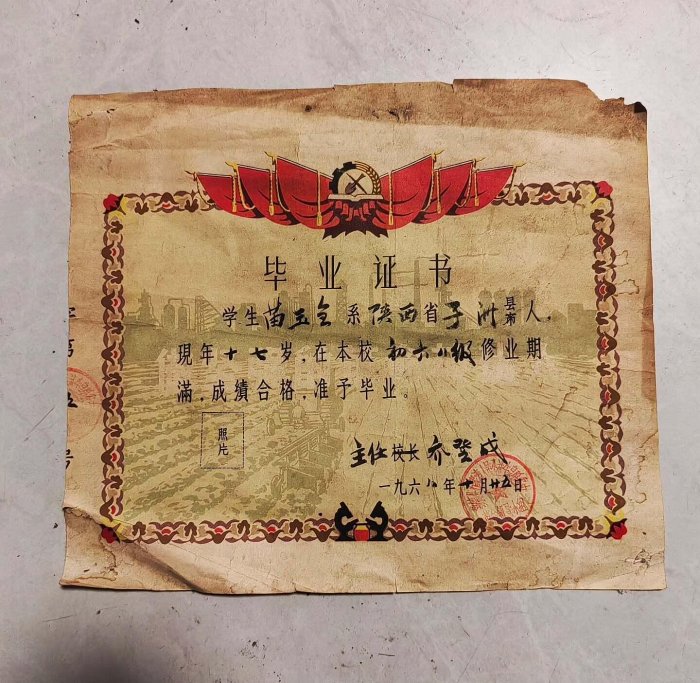 毕业证书
学生苗玉全系陕西省子洲县市人,
現年十七岁,在本校初六八级修业期
滿,成績合格,准予毕业。
照片
主任校长乔登成
一九六八年十月廿五日
字第
五
号